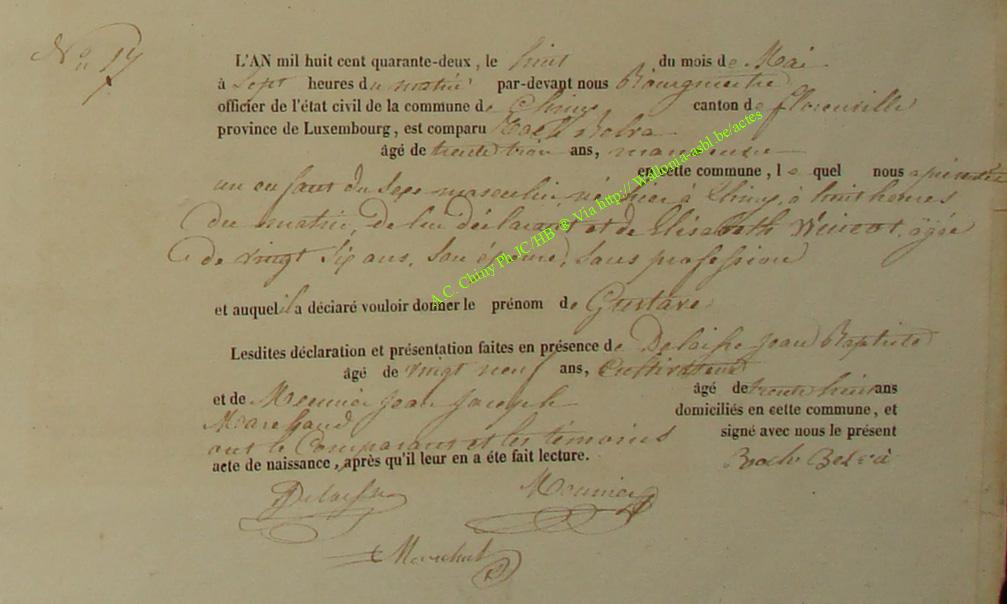 No 17
L'AN mil huit cent quarante-deux, le huit du mois de Mai
à Sept heures du matin par-devant nous Bourgmestre
officier de l'état civil de la commune de Chiny canton de florenville
province de Luxembourg, est comparu Roch
âgé de trente trois ans,
en cette commune, le quel nous a présenté
un enfant du Sexe masculin, né hier à Chiny, à huit heures
du matin, de lui déclarant et de Elisabeth agée
de vingt Six ans, son épouse, sans profession
et auquel il a déclaré vouloir donner le prénom de Gustave
Lesdites déclaration et présentation faites en présence de Delaisse Jean Baptiste
âgé de vingt neuf ans, Cultivateur
et de Meunier Jean Joseph âgé de trente huit ans
Marchand domiciliés en cette commune, et
ont le Comparant et les témoins signé avec nous le présent
acte de naissance, après qu'il leur en a éte fait lecture. Roch
Delaisse Meunier
A.C. Chiny Ph JC/HB ® Via http:// Wallonia-asbl.be/actes